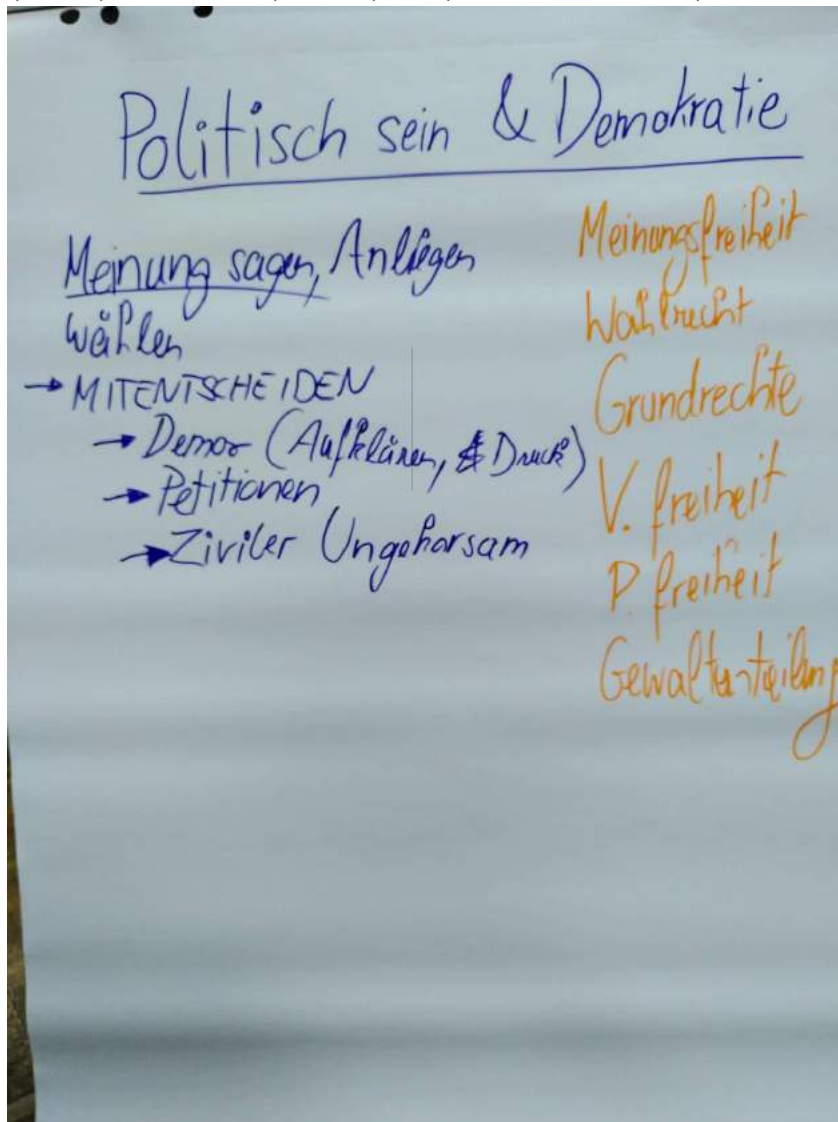 Politisch sein & Demokratie
Meinung sagen, Anliegen
wählen
→ MITENTSCHEIDEN
→ Demos (Aufklären, & Druck)
→ Petitionen
→ Ziviler Ungehorsam
Meinungsfreiheit
Wahlrecht
Grundrechte
V. freiheit
P. freiheit
Gewaltenteilung